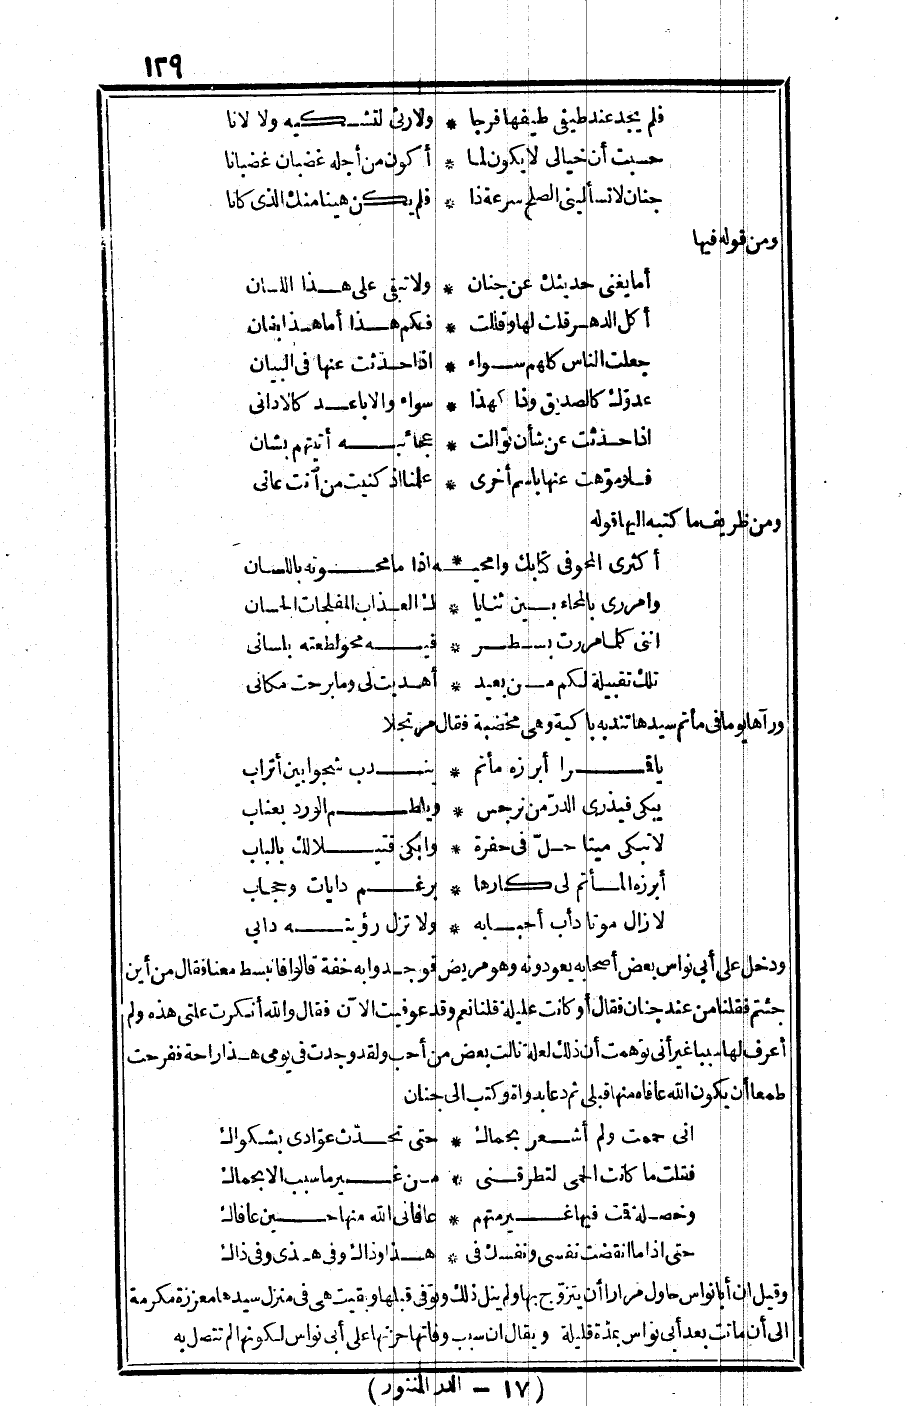 ١٢٩
فلم يجد عند طيفي طيفها فرجا * ولا رثى لتشكيه ولا لانا
حسبت أن خيالى لا يكون لما * أكون من أجله غضبان غضبانا
جنان لا تسأليني الصلح سرعة ذا * فلم يكن هينا منك الذى كانا
ومن قوله فيها
أما يغنى حديثك عن جنان * ولا تبقى على هذا اللسان
أكل الدهر قلت لها وقالت * فكم هذا أما هذا بفان
جعلت الناس كلهم سواء * اذا حدثت عنها فى البيان
عدوك كالصديق وذا كهذا * سواء والاباعد كالادانى
اذا حدثت عن شأن توالت * عجائبه أتيتهم بشان
فلو موهت عنها باسم أخرى * علمنا اذ كنيت من آنت عانى
ومن ظريف ما كتبه اليها قوله
أكثرى المحو فى كتابك وامحيه * اذا ما محوته باللسان
وامررى بالمحاء بين ثنايا * ك العذاب المفلجات الحسان
اننى كلما مررت بسطر * فيه محو لطعته بلسانى
تلك تقبيلة لكم من بعيد * أهديت لى وما برحت مكانى
ورآها يوما فى مأتم سيدها تندبه باكية وهى مخضبة فقال مرتجلا
يا قمرا أبرزه مأتم * يندب شجوا بين أتراب
يبكى فيذرى الدر من نرجس * ويلطم الورد بعناب
لا تبكى ميتا حل فى حفرة * وابكى قتيلا لك بالباب
أبرزه المأتم لى كارها * برغم دايات وحجاب
لا زال موتا دأب أحبابه * ولا تزل رؤيته دابى
ودخل على أبي نواس بعض أصحابه يعودونه وهو مريض فوجدوا به خفة قالوا فانبسط معنا فقال من أين
جئتم فقلنا من عند جنان فقال أوكانت عليلة قلنا نعم وقد عوفيت الآن فقال والله أنكرت علتى هذه ولم
أعرف لها سببا غير أنى توهمت أن ذلك لعلة نالت بعض من أحب ولقد وجدت فى يومى هذا راحة ففرحت
طمعا أن يكون الله عافاه منها قبلى ثم دعا بدواة وكتب الى جنان
انى حممت ولم أشعر بحماك * حتى تحدث عوادى بشكواك
فقلت ما كانت الحمى لتطرقنى * من غير ما سبب الا بحماك
وخصلة قمت فيها غير متهم * عافانى الله منها حين عافاك
حتى اذا ما انقضت نفسى ونفسك فى * هذا وذاك وفى هذى وفى ذاك
وقيل ان أبا نواس حاول مرارا أن يتزوج بها ولم ينل ذلك وتوفى قبلها وبقيت هى فى منزل سيدها معززة مكرمة
الى أن ماتت بعد أبى نواس بمدة قليلة ويقال ان سبب وفاتها حزنها على أبى نواس لكونها لم تتصل به
(١٧ - الدر المنثور)